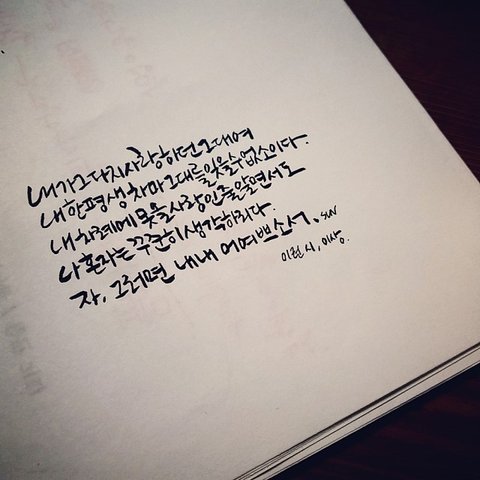 내가 그다지 사랑하던 그대여
내 한평생 차마 그대를 잊을 수 없소이다.
내 차례에 못 올 사랑인 줄 알면서도
나 혼자는 꾸준히 생각하리다.
자, 그러면 내내 어여쁘소서. sw
이런 시, 이상.